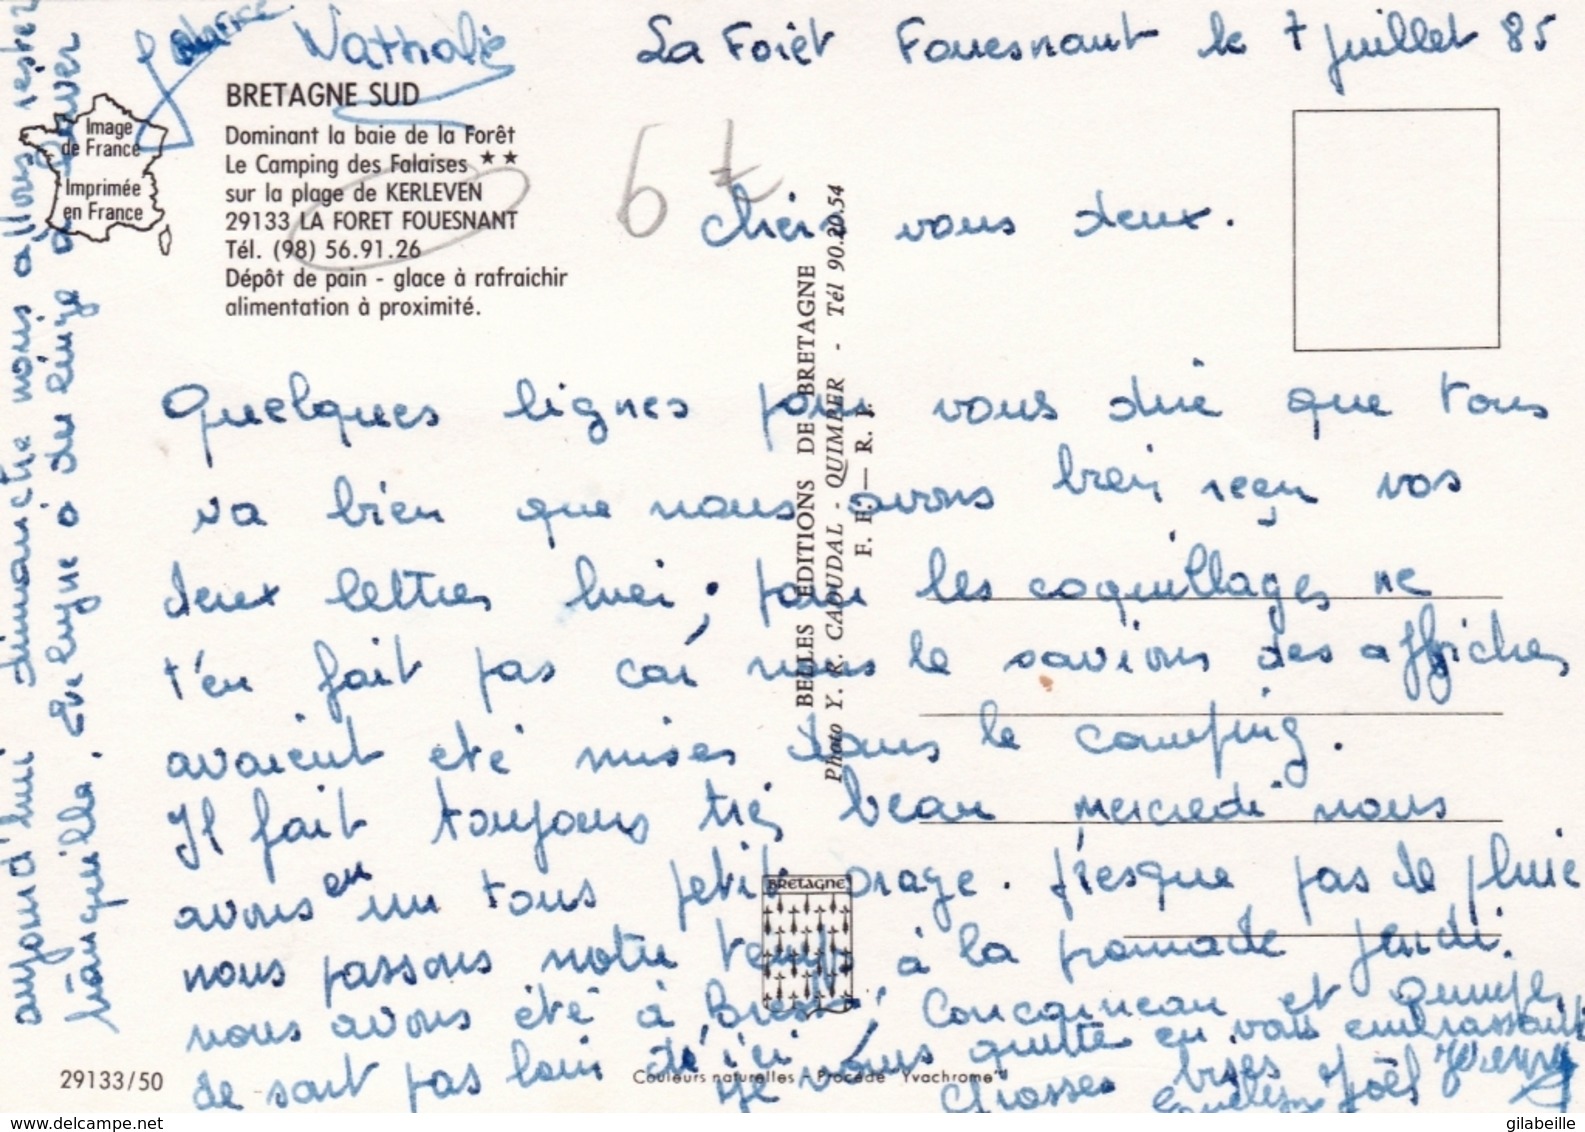 La Forêt Fouesnant le 7 juillet 85
Nathalie
BRETAGNE SUD
Dominant la baie de la Forêt
Le Camping des Falaises ★★
sur la plage de KERLEVEN
29133 LA FORET FOUESNANT
Tél. (98) 56.91.26
Dépôt de pain - glace à rafraichir
alimentation à proximité.
Image
de France
Imprimée
en France
6 F
Chers vous deux.
Quelques lignes pour vous dire que tous
va bien que nous avons bien reçu vos
deux lettres hier ; pour les coquillages ne
t'en fait pas car nous le savions des affiches
avaient été mises dans le camping.
Il fait toujours très beau mercredi nous
avons en un tous petit orage. Presque pas de pluie
nous passons notre temps à la promade jeudi.
nous avons été à Brest, Concarneau et Quimper
de sont pas loin de' ici. Je vous quitte en vous embrassant
Grosses bises Joël
aujourd'hui dimanche nous allons rester
tranquille. Evelyne à du linge à laver
BELLES EDITIONS DE BRETAGNE
Photo Y. R. CAOUDAL - QUIMPER - Tél 90.20.54
F. F. — R. F.
BRETAGNE
29133/50
Couleurs naturelles - Procédé "Yvachrome"
delcampe.net
gilabeille